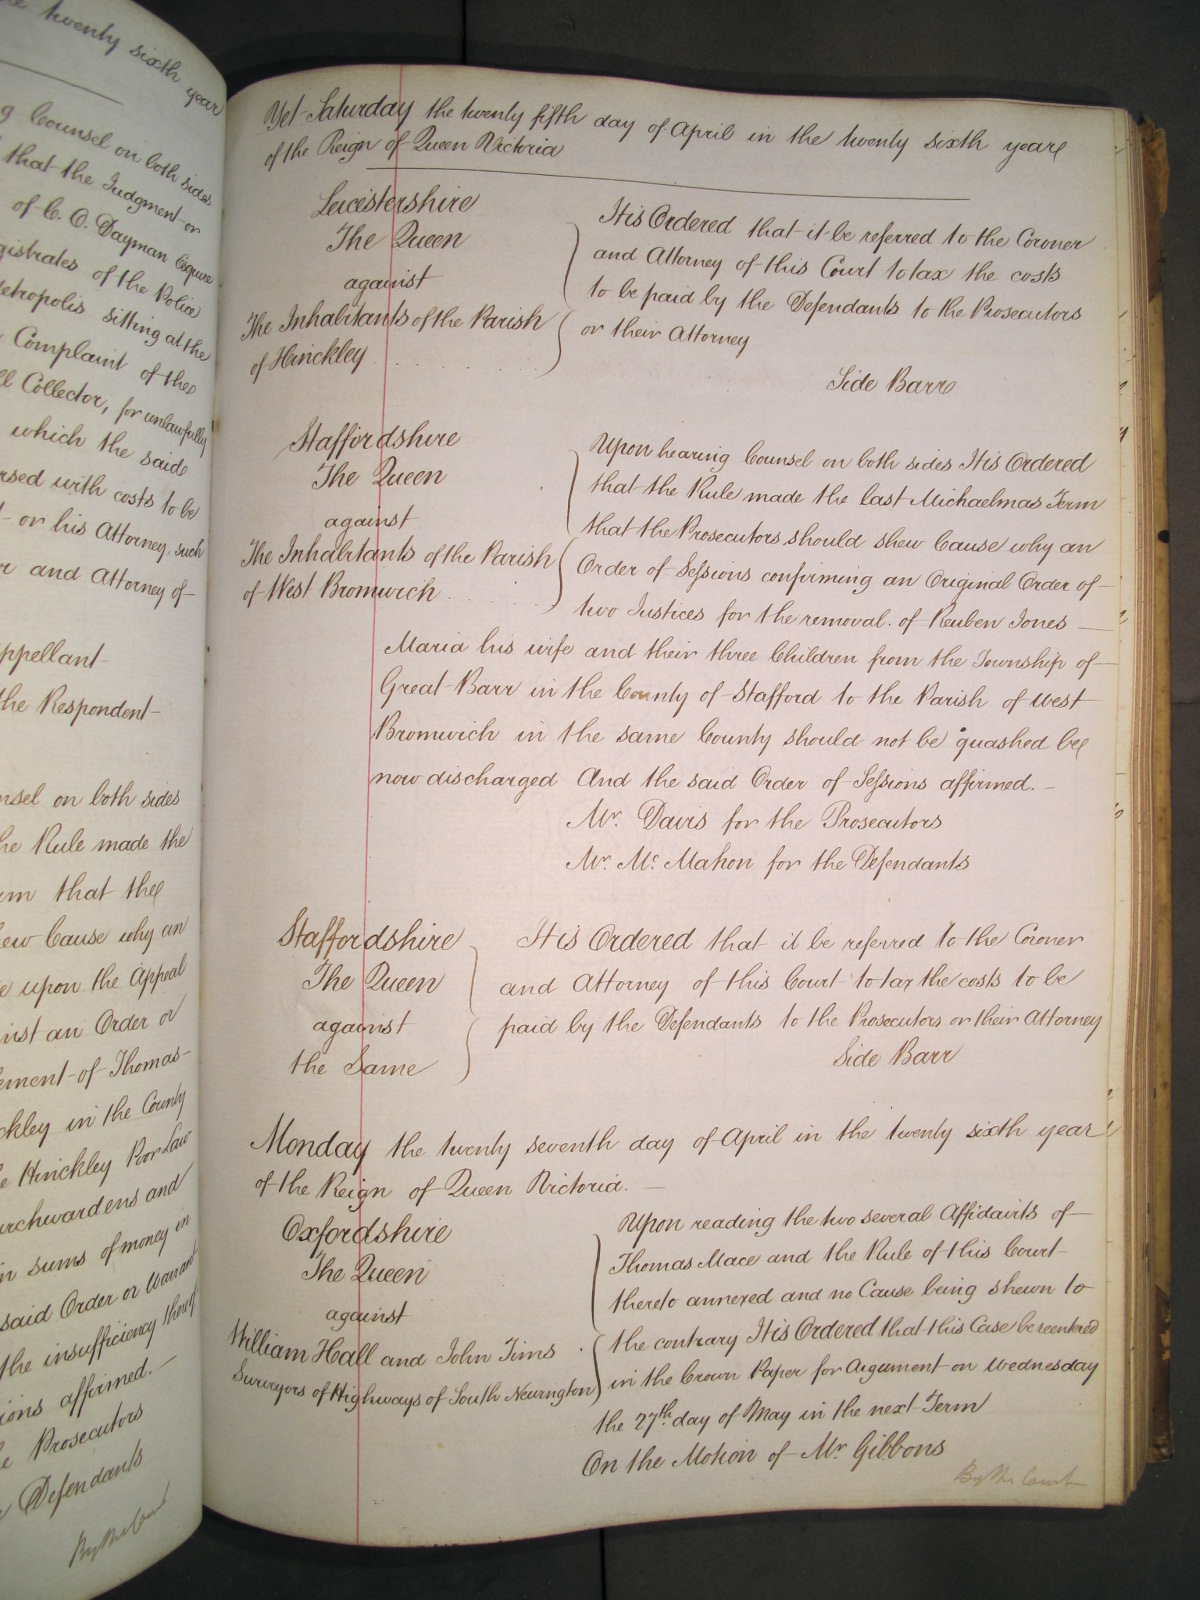 the twenty sixth year
g Counsel on both sides
that the Judgment or
of C. O. Dayman Esquire
gistrates of the Police
etropolis sitting at the
Complaint of the
ll Collector, for unlawfully
which the said
rsed with costs to be
t or his Attorney, such
r and Attorney of
ppellant
the Respondent
nsel on both sides
he Rule made the
rm that the
ew Cause why an
e upon the Appeal
inst an Order or
ement of Thomas
ckley in the County
e Hinckley Poor Law
urchwardens and
n sums of money in
said Order or Warrant
the insufficiency thereof
ions affirmed.
e Prosecutors
Defendants
By the Court
Yet Saturday the twenty fifth day of April in the twenty sixth year
of the Reign of Queen Victoria
Leicestershire
The Queen
against
The Inhabitants of the Parish
of Hinckley
It is Ordered that it be referred to the Coroner
and Attorney of this Court to tax the costs
to be paid by the Defendants to the Prosecutors
or their Attorney
Side Barr
Staffordshire
The Queen
against
The Inhabitants of the Parish
of West Bromwich
Upon hearing Counsel on both sides It is Ordered
that the Rule made the last Michaelmas Term
that the Prosecutors should shew Cause why an
Order of Sessions confirming an Original Order of
two Justices for the removal of Reuben Jones
Maria his wife and their three Children from the Township of
Great Barr in the County of Stafford to the Parish of West
Bromwich in the same County should not be quashed be
now discharged And the said Order of Sessions affirmed.
Mr. Davis for the Prosecutors
Mr. Mc. Mahon for the Defendants
Staffordshire
The Queen
against
the Same
It is Ordered that it be referred to the Coroner
and Attorney of this Court to tax the costs to be
paid by the Defendants to the Prosecutors or their Attorney
Side Barr
Monday the twenty seventh day of April in the twenty sixth year
of the Reign of Queen Victoria.
Oxfordshire
The Queen
against
William Hall and John Tims
Surveyors of Highways of South Newington
Upon reading the two several Affidavits of
Thomas Mace and the Rule of this Court
thereto annexed and no Cause being shewn to
the contrary It is Ordered that this Case be reentered
in the Crown Paper for Argument on Wednesday
the 27th. day of May in the next Term
On the Motion of Mr Gibbons
By the Court